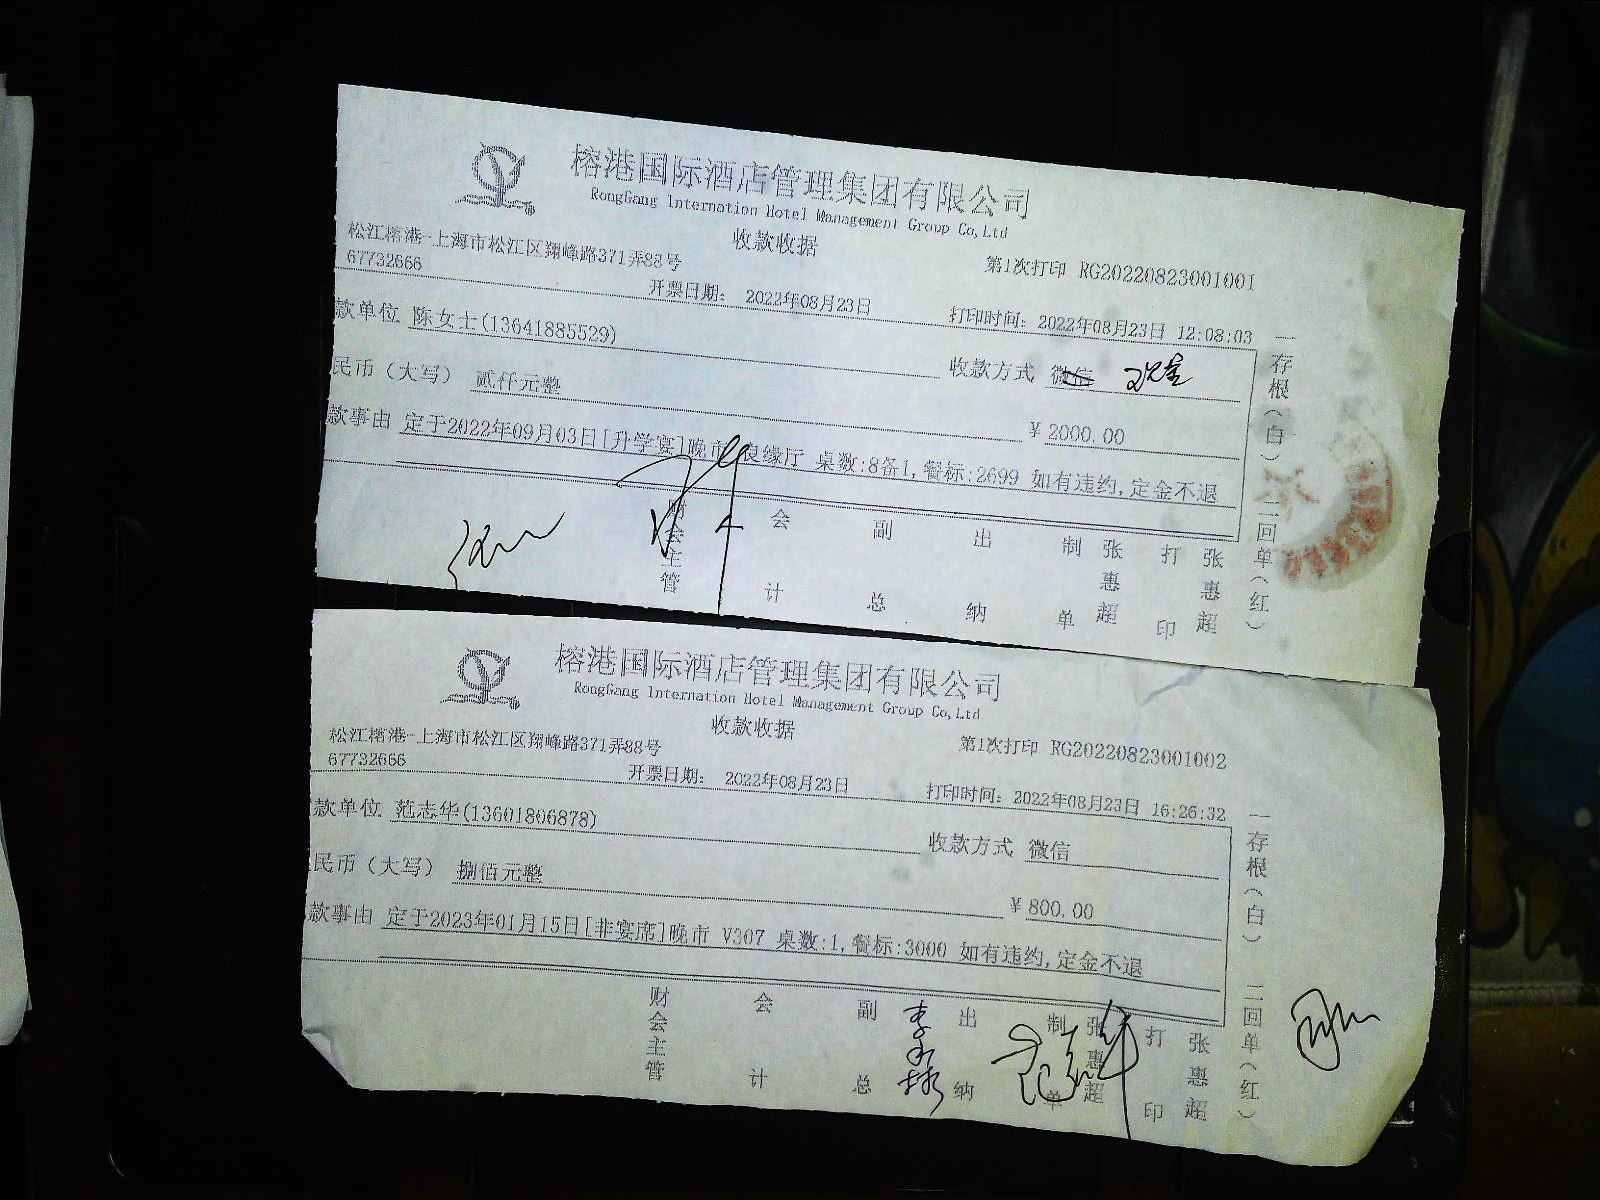 榕港国际酒店管理集团有限公司
RongGang Internation Hotel Management Group Co,Ltd
收款收据
松江榕港-上海市松江区翔峰路371弄88号
67732666
第1次打印 RG20220823001001
开票日期: 2022年08月23日
打印时间: 2022年08月23日 12:08:03
款单位 陈女士(13641885529)
收款方式 微信 现金
民币(大写) 贰仟元整
¥ 2000.00
款事由 定于2022年09月03日[升学宴]晚市 良缘厅 桌数:8备1,餐标:2699 如有违约,定金不退
财会主管 会计 副总 出纳 制单 张惠超 打印 张惠超
一存根(白) 二回单(红)
榕港国际酒店管理集团有限公司
RongGang Internation Hotel Management Group Co,Ltd
收款收据
松江榕港-上海市松江区翔峰路371弄88号
67732666
第1次打印 RG20220823001002
开票日期: 2022年08月23日
打印时间: 2022年08月23日 16:26:32
款单位 范志华(13601806878)
收款方式 微信
民币(大写) 捌佰元整
¥ 800.00
款事由 定于2023年01月15日[非宴席]晚市 V307 桌数:1,餐标:3000 如有违约,定金不退
财会主管 会计 副总 出纳 制单 张惠超 打印 张惠超
一存根(白) 二回单(红)